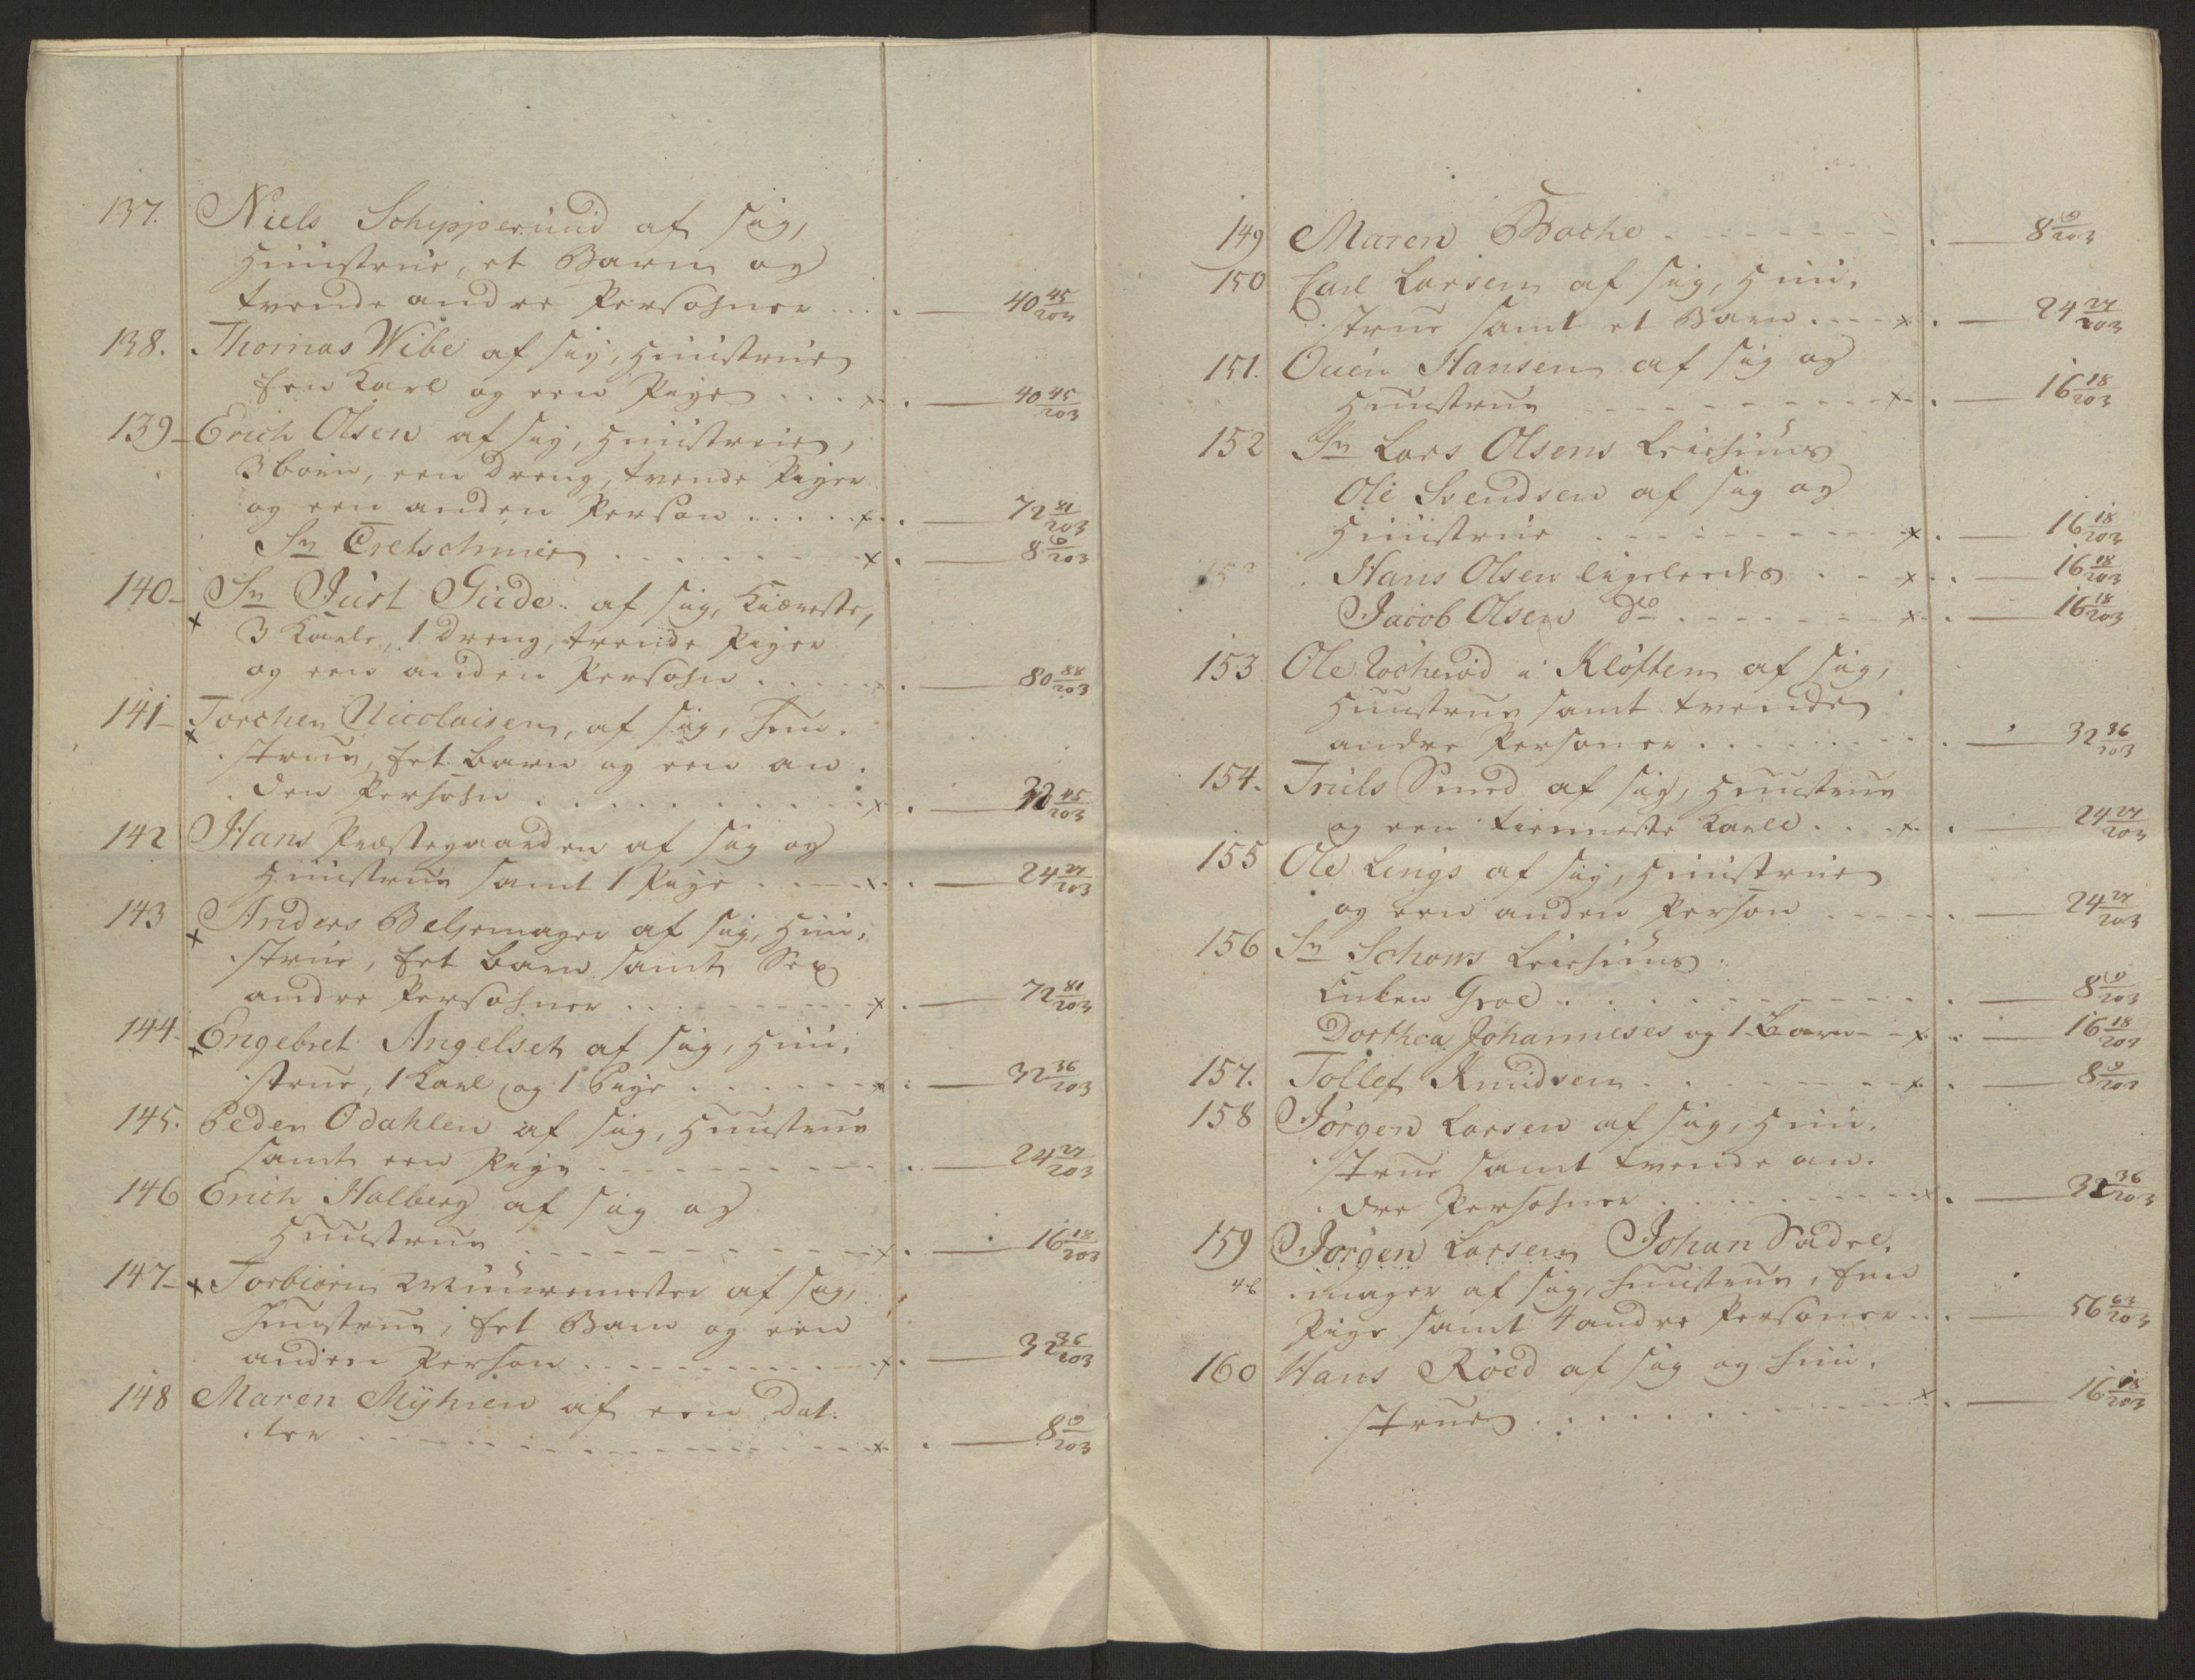 137. Niels Schipperund af sig,
Huustrue, et Barn og
tvende andre Persohner . . . . — 40 45/203
138. Thomas Wibe af sig, Huustrue
Een Karl og een Pige . . . x . — 40 45/203
139 Erich Olsen af sig, Huustrue,
3 børn, een Dreng, tvende Piger
og een anden Person . . . . x . — 72 81/203
Sr Cretschmer . . . . x . — 8 9/203
140 Sr Just Gude af sig, Kiæreste,
x 3 Karle, 1 Dreng, tvende Piger
og een anden Persohn . . . . — 80 88/203
141 Torchen Nicolaisen, af sig, Huu-
x strue, Eet barn og een an-
den Persohn . . . . x . — 32 45/203
142 Hans Præstegaarden af sig og
Huustrue samt 1 Pige . . x . — 24 27/203
143 Anders Beltsemager af sig, Huu-
x strue, Eet barn samt Sex
andre Persohner . . . . x . — 72 81/203
144 Engebret Angelset af sig, Huu-
x strue, 1 Karl og 1 Pige . . . . x . — 32 36/203
145. Peder Odahlen af sig, Huustrue
samt een Pige . . . . — 24 27/203
146 Erich Halberg af sig og
Huustrue . . . . x . — 16 18/203
147 x Torbiørn Muuremester af sig,
Huustrue, Eet Barn og een
anden Person . . . . x . — 32 36/203
148 Maren Myhren af een Dat-
ter . . . . x . — 8 9/203
149 Maren Bache . . . . — 8 9/203
150 Carl Larsen af sig, Huu-
strue samt et Barn . . . x . — 24 27/203
151. Ouen Hansen af sig og
Huustrue . . . . x . — 16 18/203
152 Sr Lars Olsens Leiehuus
Ole Svendsen af sig og
Huustrue . . . . x . — 16 18/203
Hans Olsen ligeledes . . x . — 16 18/203
Jacob Olsen do . . . . x . — 16 18/203
153 Ole Rocherød i Kløften af sig,
Huustrue samt tvende
andre Personer . . . . — 32 36/203
154. Truls Smed af sig, Huustrue
og een tienneste Karll . . x . — 24 27/203
155 Ole Lings af sig, Huustrue
og een anden Person . . . . — 24 27/203
156 Sr Schows Leiehuus
Enken Groe . . . . — 8 9/203
Dorthea Johanneses og 1 Barn x . — 16 18/203
157. Tollef Knudsen . . . . x . — 8 9/203
158 Jørgen Larsen af sig, Huu-
strue samt tvende an-
dre Persohner . . . . x . — 32 36/203
159 Jørgen Larsen Johan Sadel-
mager af sig, Huustrue, Een
Pige samt 4 andre Personer . . — 56 63/203
160 Hans Røed af sig og Huu-
strue . . . . x . — 16 18/203